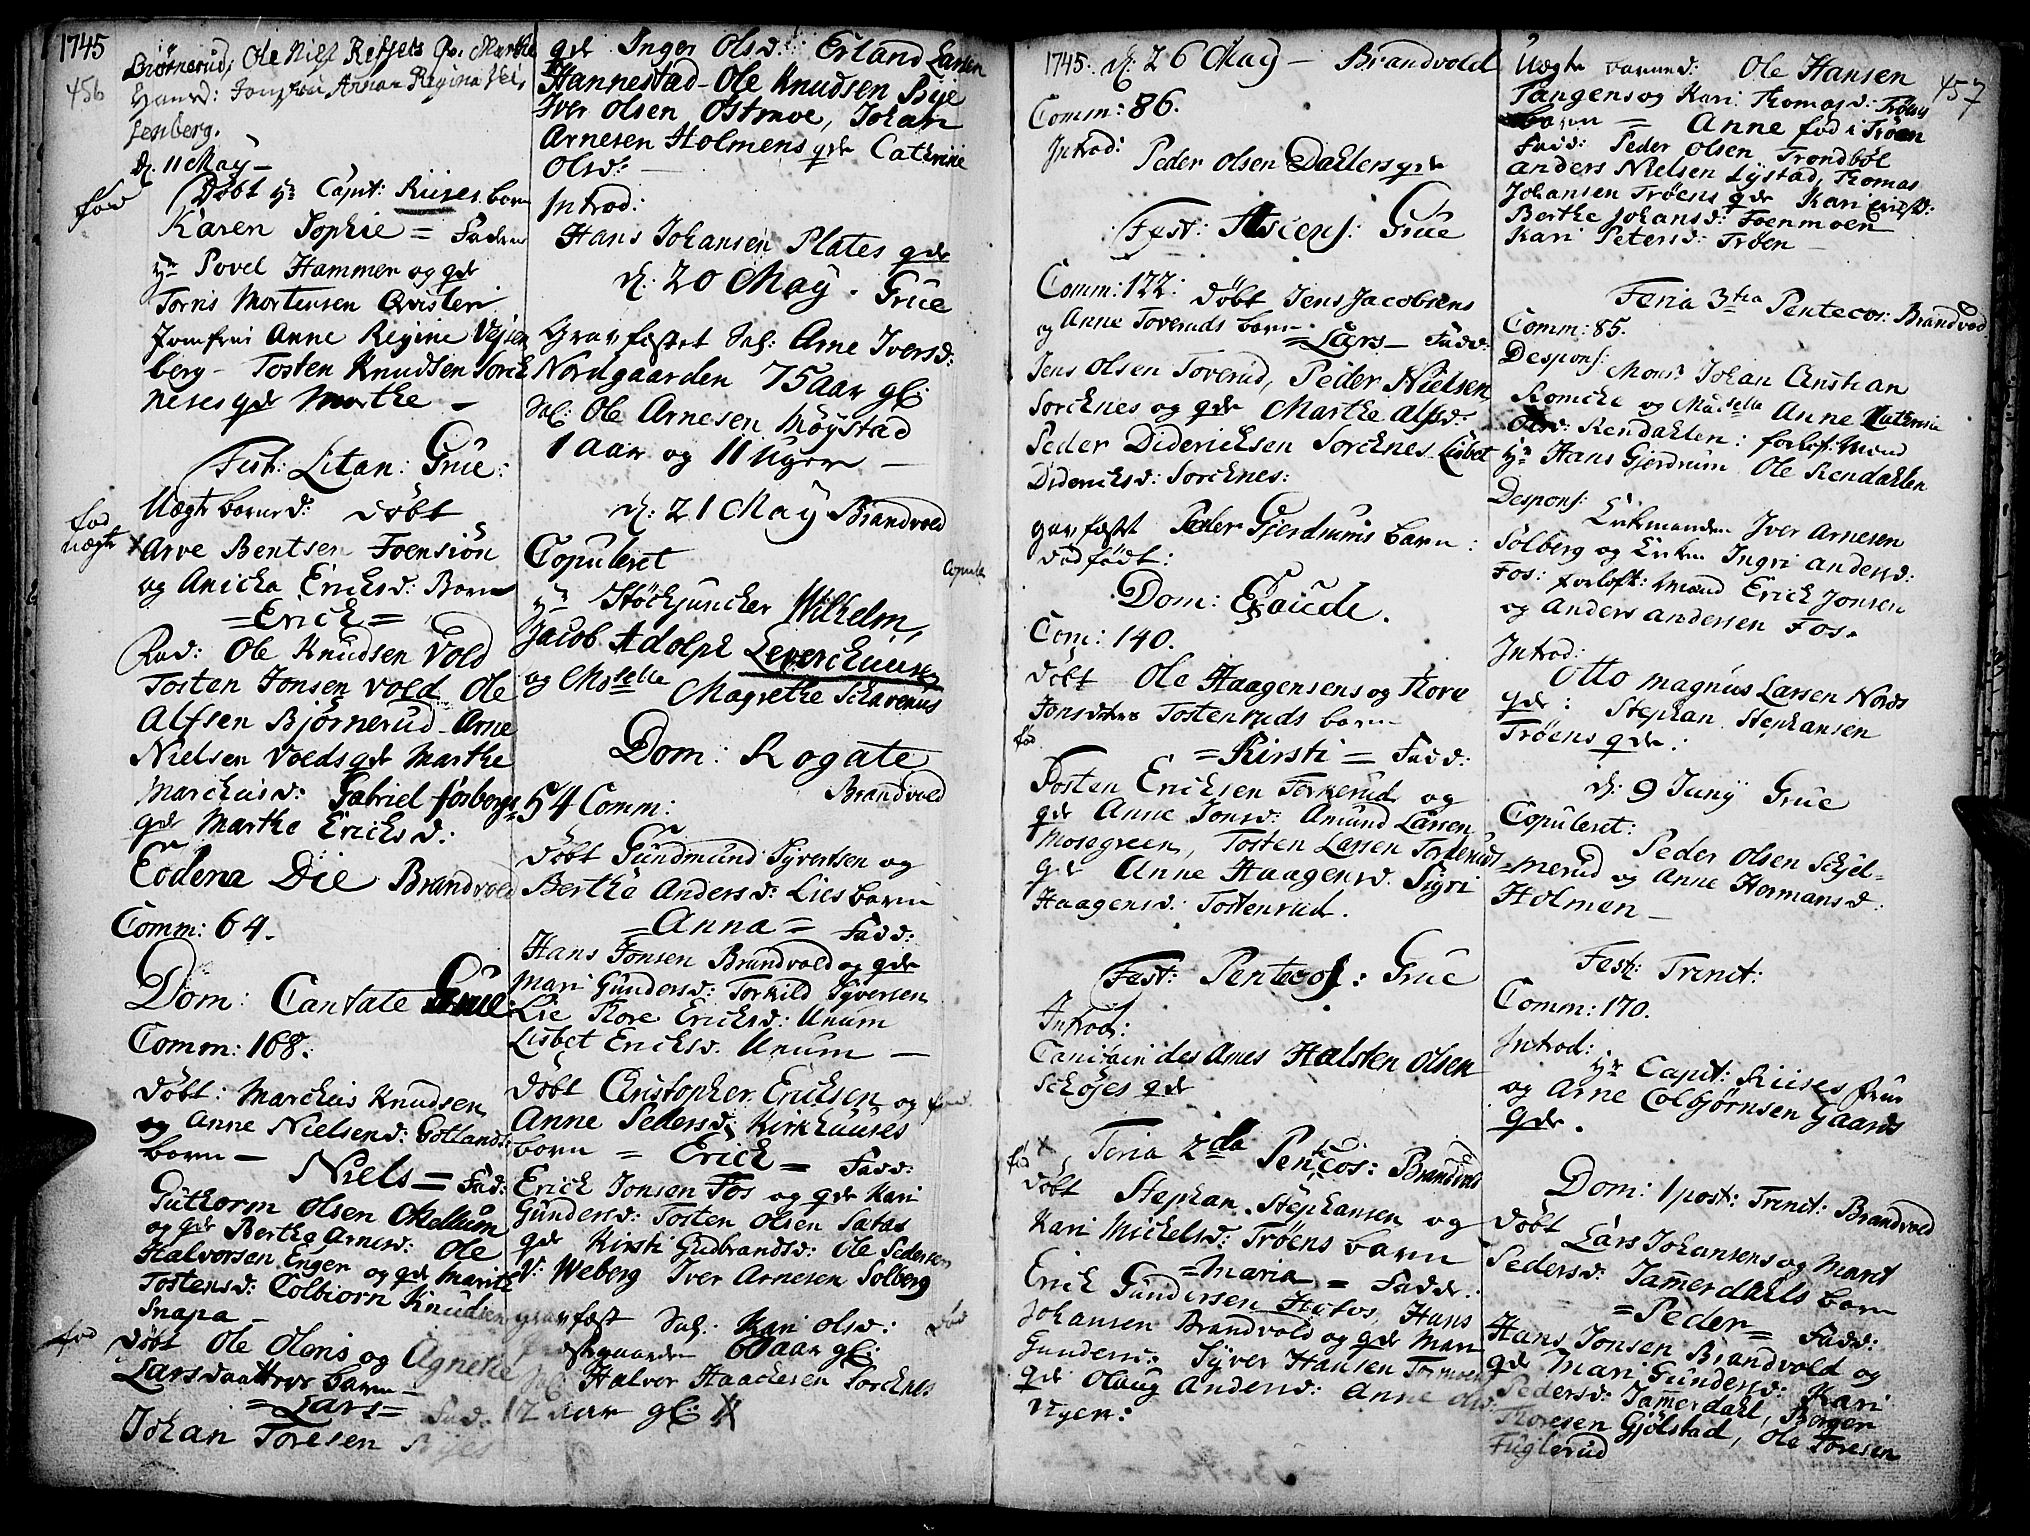 1745
456
Biørnerud, Ole Nils Refsets Qv. Marthe
Hansd: Jomfru Anna Regina Vei,
senberg.
d. 11 May –
fød
Døbt Hr Capit: Riises barn
Karen Sophie = Fadere
Hr Povel Hammer og qde
Tørris Mortensen Qvisteri
Jomfru Anne Regine Vejsen
berg – Tosten Knudsen Sorck
neses qde Marthe –
Fest: Litan: Grue:
Uægte barn døbt
fød
uægte
Arve Bentsen Foensiön
og Anicka Ericksd: Barn
= Erick =
Fad: Ole Knudsen Vold
Tosten Jonsen Vold Ole
Alfsen Bjørnerud Arne
Nielsen Volds qde Marthe
Marckusd: Gabriel fosbergs
qde Marthe Ericksd:
Eodem Die Brandvold
Comm: 64.
Dom: Cantate Grue
Comm: 168.
Døbt: Marckus Knudsen
og Anne Nielsd: Gotlands
barn –
Niels = Fad:
Guthorm Olsen Mellum
og qde Berthe Arnesd: Ole
Halvorsen Enger og qde Marithe
Tostensd: Colbiorn Knudsen
Snapa –
fød
Døbt Ole Olens og Agnethe
Larsdaatters barn –
= Lars = Fad:
Johan Toresen Byes
qde Inger Olsd: Erland Larsen
Hannestad – Ole Knudsen Bye
Iver Olsen Ostmoe, Johan
Arnesen Holmens qde Cathrine
Olsd: –
Introd:
Hans Johansen Plates qde
d. 20 May. Grue
Gravfæstet Sal: Arne Iversd:
Nordgaarden 75 aar gl:
Sal: Ole Arnesen Møystad
1 aar og 11 Uger –
d. 21 May Brandvold
Copuleret
Copule
Hr Støckjuncker Wilhelm,
Jacob Adolph Leverckuus
og Mselle
Magrethe Schavenius
Dom: Rogate
Brandvold
54 Comm:
Døbt Gundmund Syvertsen og
Berthe Andersd: Lies barn
= Anna = Fadd:
Hans Jonsen Brandvold og qde
Mari Gundersd: Torkild Syversen
Lie Thore Ericksd: Unum
Lisbet Ericksd. Unum –
Døbt Christopher Ericksen og
Anne Pedersd: Kirckhuuses
barn = Erick = Fadd:
Erick Jonsen Fos og qde Kari
Gundersd: Tosten Olsen Satas
qde Kirsti Gudbrandsd: Ole Pedersen
V: Weberg Iver Arnesen Solberg
gravfæst Sal: Kari Olsd:
død
60 aar gl:
Sal: Halvor Haachesen Sorcknes
12 aar gl:
1745. d: 26 May – Brandvold
Comm: 86.
Introd:
Peder Olsen Dahlers qde
Fest: Ascens: Grue
Comm: 122:
Døbt Jens Jacobsens
og Anne Toveruds barn
= Lars – Fadd:
Jens Olsen Toverud, Peder Nielsen
Sorcknes og qde Marthe Alfsd:
Peder Didericksen Sorcknes. Lisbet
Didericksd: Sorcknes:
gravfæst Peder Gjerdrums barn:
dødfødt:
Dom: Exaudi.
Com: 140.
Døbt Ole Haagensens og Thore
Jonsdtters Tostenruds barn
fød
= Kirsti = Fadd:
Tosten Ericksen Torkerud og
qde Anne Jonsd: Amund Larsen
Mosegreen, Tosten Larsen Torkeruds
qde Anne Haagensd. Sigri
Haagensd: Tostenrud.
Fest: Pentecos: Grue
Introd:
Capitain des Ames Halsten Olsen
Schøyes qde
Feria 2da Pentecos: Brandvold
fød
Døbt Stephan Stephansen og
Kari Michelsd: Trøens barn
= Maria = Fadd:
Erick Gundersen Hofvos, Hans
Johansen Brandvold og qde Mari
Gundersd: Syver Hansen Tormoen
qde Olaug Andersd: Anne Olsd
Ugen:
457
Uægte barn: Ole Hansen
Tangens og Kari Thomasd: Trøens
barn = Anne fød i Trøen
Fadd: Peder Olsen Trondbøl
Anders Nielsen Lystad, Thomas
Johansen Trøens qde Kari Ericksd:
Berthe Johansd: Foenmoen
Kari Petersd: Trøen –
Feria 3tia Pentecos: Brandvold
Comm: 85.
Despons:
Monsr Johan Christian
Romcke og Maselle Anne Cathrine
Olsd: Rendahlen: forlof: Mænd
Hr Hans Gjerdrum Ole Rendahlen
Despons:
Enkemanden Iver Arnesen
Solberg og Enken Ingri Andersd:
Fos: forloft: Mænd Erick Jonsen
og Anders Andersen Fos.
Introd:
Otto Magnus Larsen Nords
qde: Stephan Stephansen
Trøens qde:
d: 9 Junij Grue
Copuleret:
Peder Olsen Schjel-
=merud og Anne Hermansd:
Holmen –
Fest: Trinit:
Comm: 170.
Introd:
Hr Capit: Riises frue
og Arne Colbjørnsen Gaards
qde.
Dom: 1 post: Trinit: Brandvold
Døbt Lars Johansens og Marit
Pedersd: Jammerdahls barn
= Peder = Fadd:
Hans Jonsen Brandvold og
qde Mari Gundersd: Kari
Pedersd: Jammerdahl, Børger
Thoresen Gjølstad, Ole Toresen
Fuglerud